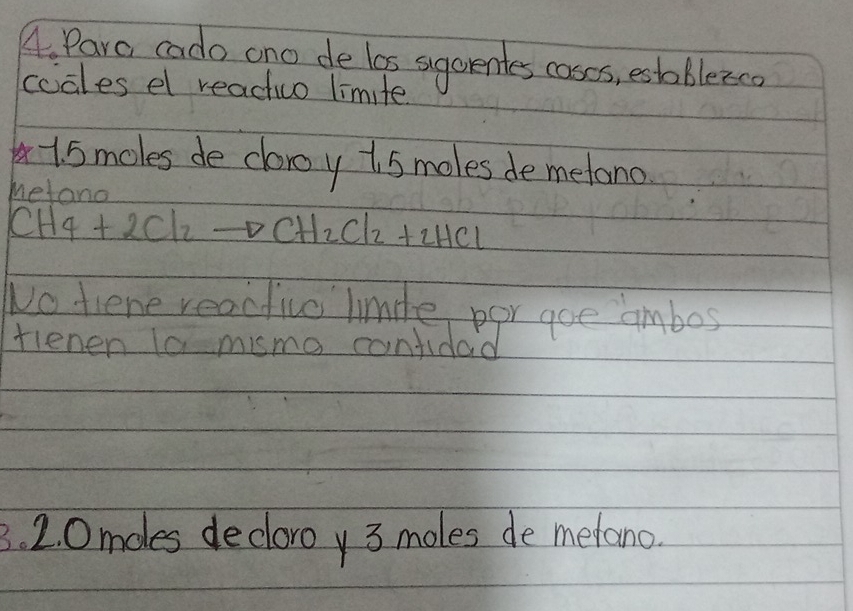 4. Para cada uno de los siguientes casos, establezca
cuáles el reactivo límite
1.5 moles de cloro y 1.5 moles de metano.
Metano
CH4 + 2Cl2 → CH2Cl2 + 2HCl
No tiene reactivo limite, por que ambos
tienen la misma cantidad
3. 2.0 moles de cloro y 3 moles de metano.